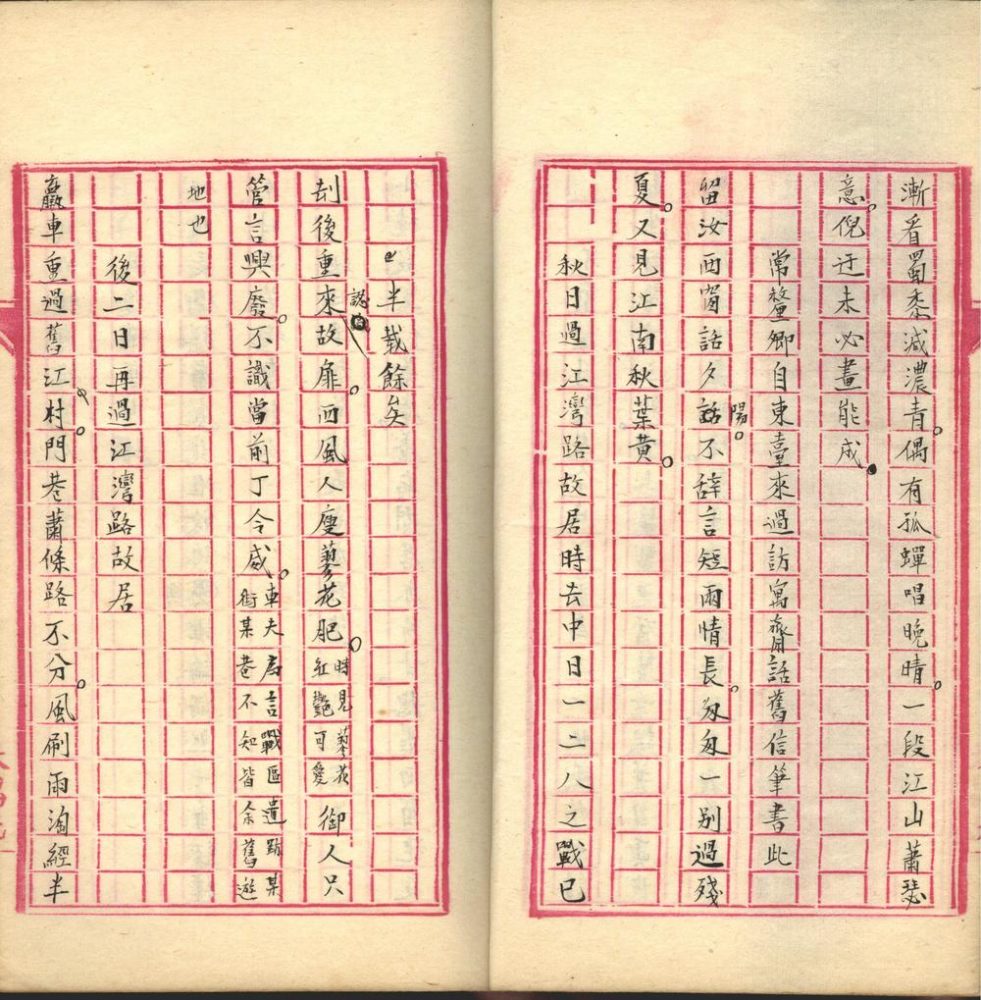 漸看蜀黍減濃青。偶有孤蟬唱晚晴。一段江山蕭瑟
意。倪迂未必畫能成。
常鏊卿自東臺來過訪寓齋話舊信筆書此
留汝西窗話夕話不辞言短雨情長。匆匆一别過殘
陽。
夏。又見江南秋葉黄。
秋日過江灣路故居時去中日一二八之戰已
半載餘矣
刦後重來故扉。西風人瘦蓼花肥。時見蓼花紅艶可愛御人只
認
管言興廢。不識當前丁令威。車夫為言戰區遺跡某街某巷不知皆余舊遊
地也
後二日再過江灣路故居
羸車重過舊江村。門巷蕭條路不分。風刷雨淘經半